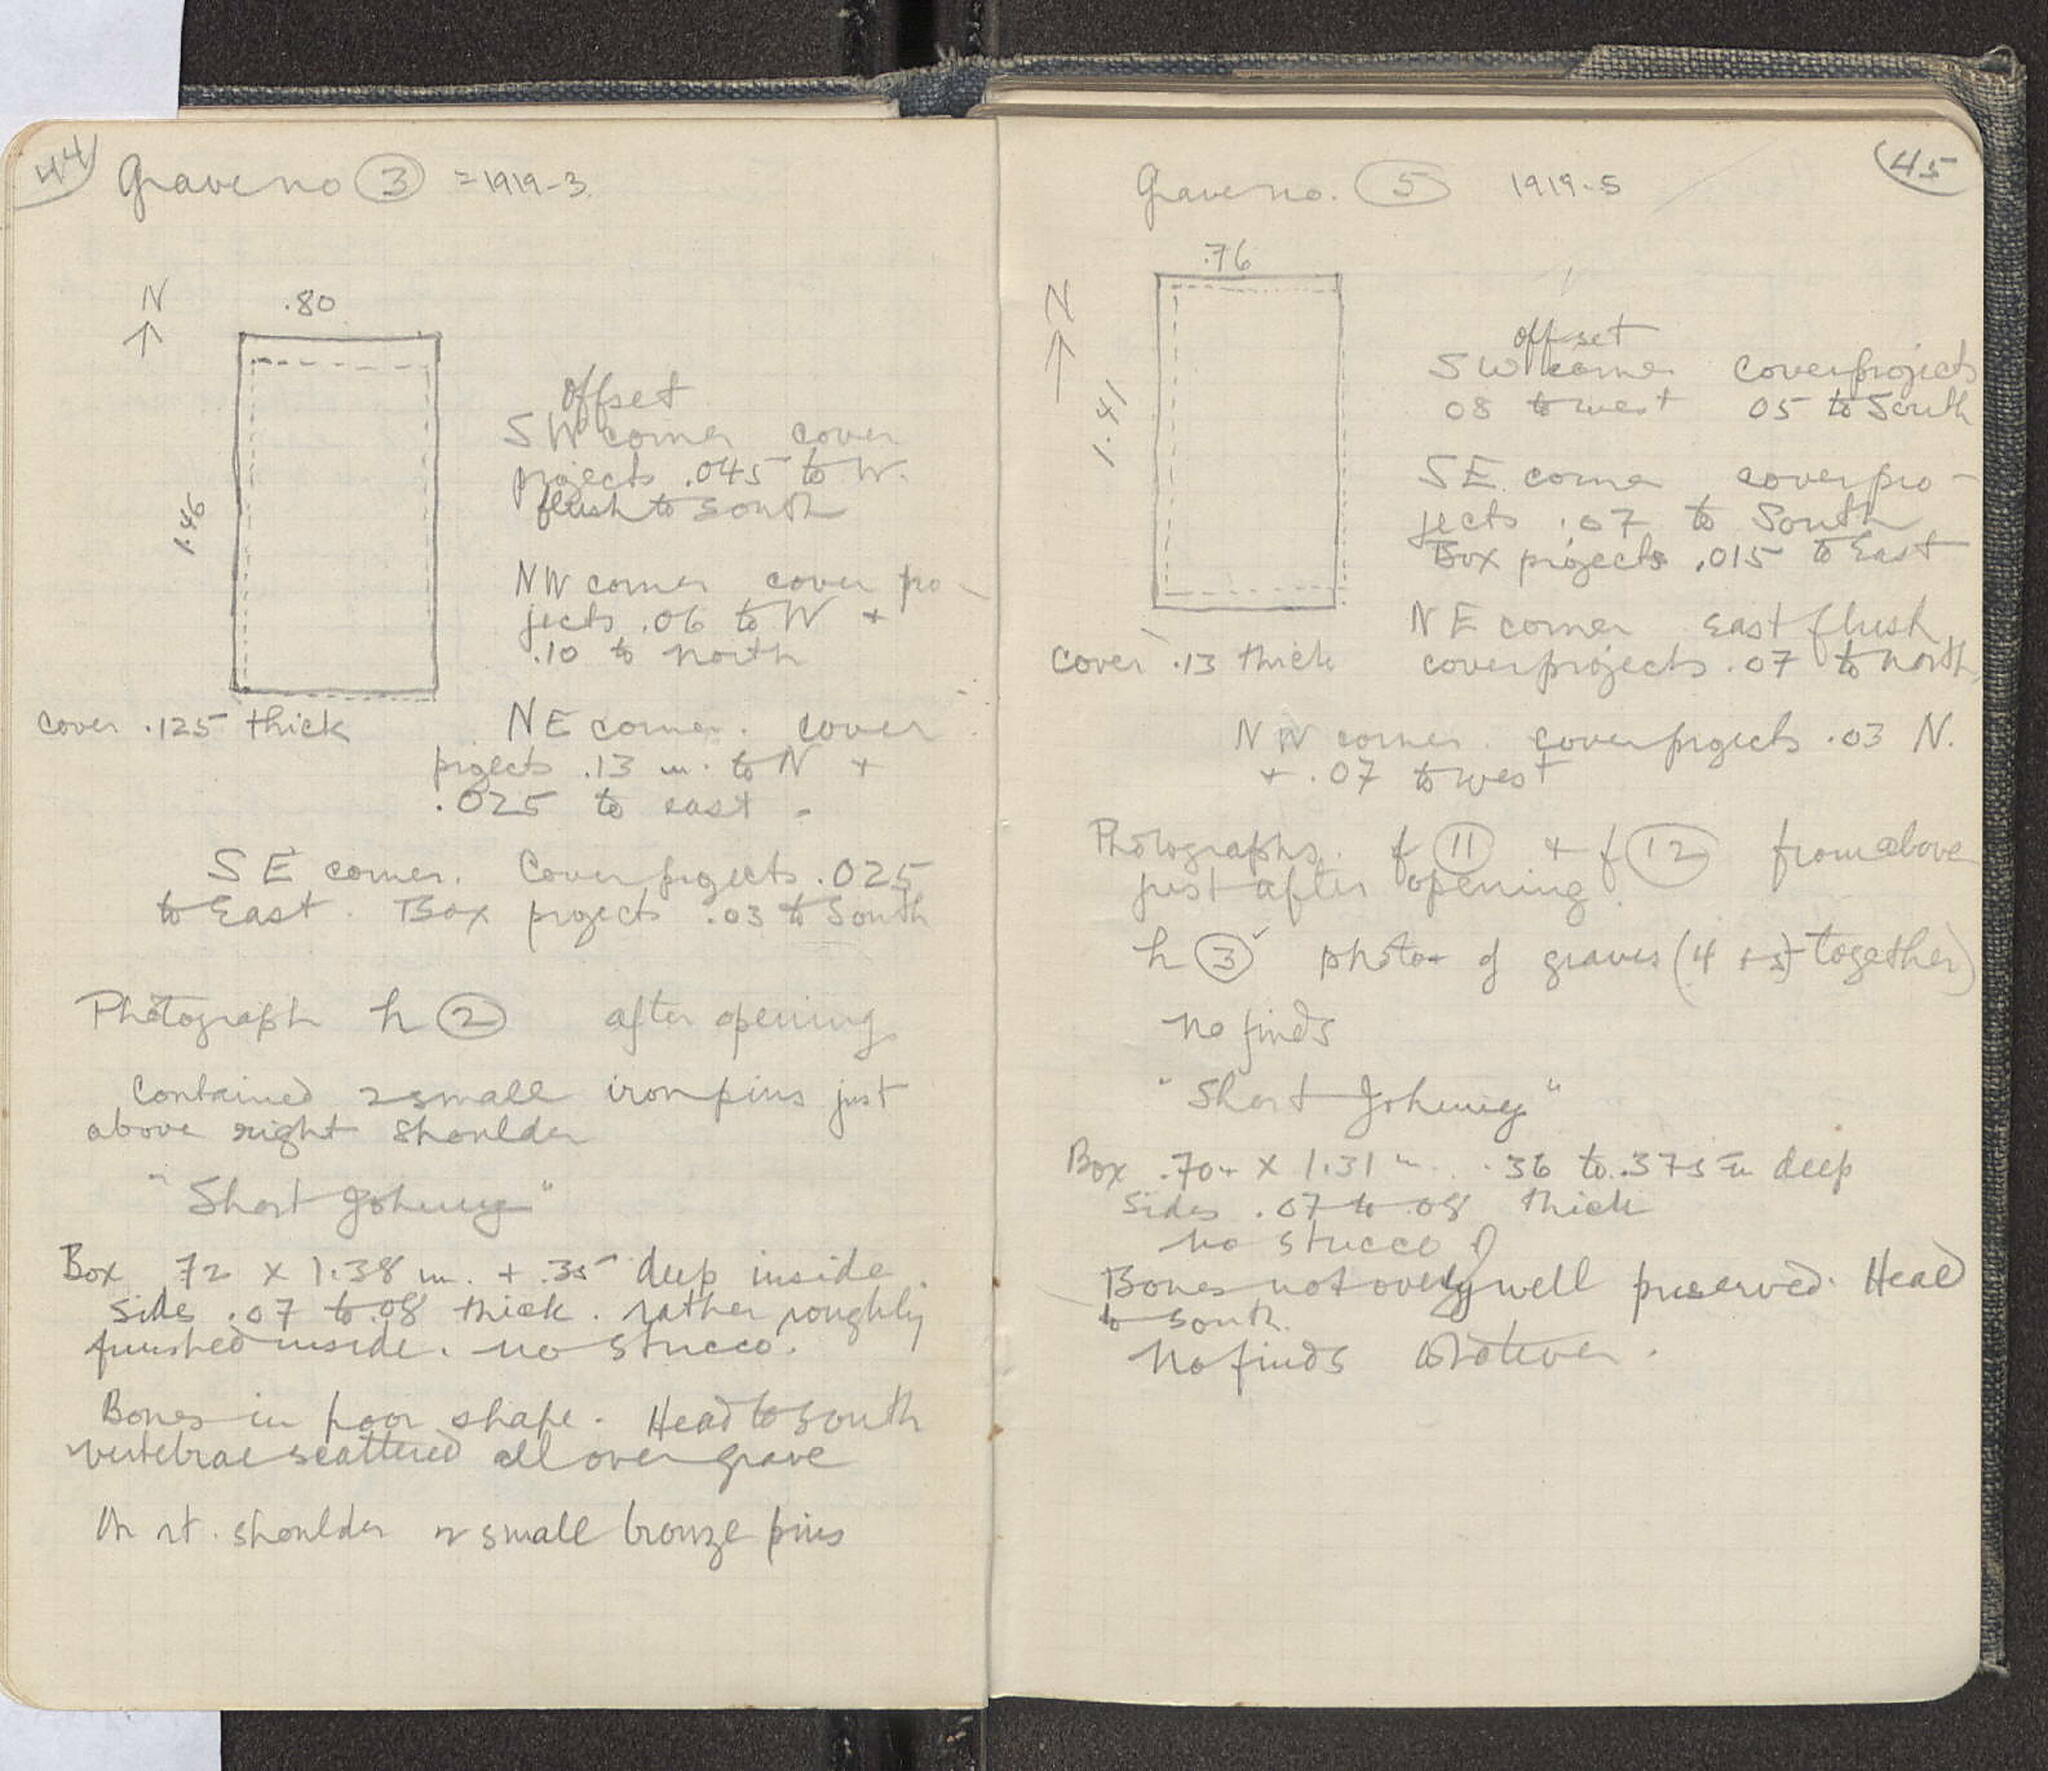 44
Grave no 3 = 1919-3.
N
.80
1.46
cover .125 thick
offset
SW corner cover
projects .045 to W.
flush to south
NW corner cover pro-
jects .06 to W +
.10 to north
NE corner. cover
projects .13 m. to N +
.025 to east -
SE corner. Cover projects .025
to East. Box projects .03 to South
Photograph h 2 after opening
Contained 2 small iron pins just
above right shoulder
"Short Johnny"
Box 72 x 1.38 m. + .35 deep inside.
Sides .07 to .08 thick. rather roughly
finished inside. no stucco.
Bones in poor shape. Head to south
vertebrae scattered all over grave
On rt. shoulder 2 small bronze pins
45
Grave no. 5 1919-5
N
.76
1.41
cover .13 thick
offset
SW corner cover projects
08 to west 05 to South
SE corner cover pro-
jects .07 to South
Box projects .015 to East
NE corner East flush
cover projects .07 to north
NW corner. cover projects .03 N.
+ .07 to west
Photographs. f 11 + f 12 from above
just after opening.
h 3 photo of graves (4 + 5 together)
no finds
"Short Johnny"
Box .70+ x 1.31 m. .36 to .375 m deep
Sides .07 to .08 thick
no stucco
Bones not overly well preserved. Head
to south.
No finds whatever.